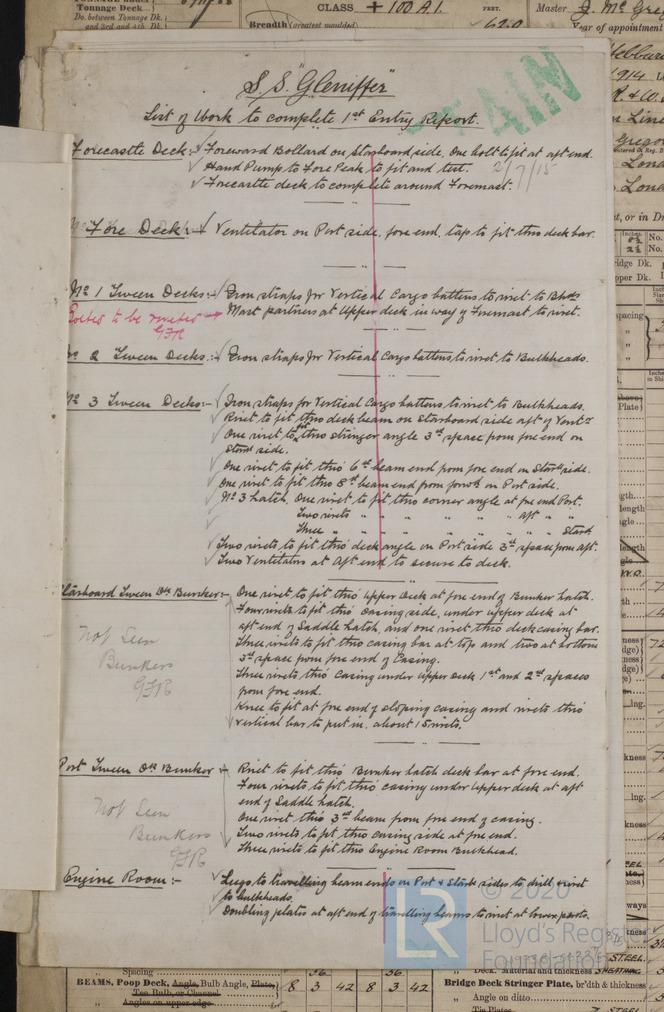 Tonnage Deck
Do. between Tonnage Dk.
and 3rd and 4th Dk.
CLASS + 100 A.1.
FEET.
Breadth (greatest moulded)
62.0
Master J. McGre
Year of appointment
1914
S.S. "Gleniffer"
List of Work to complete 1st Entry Report.
Forecastle Deck:- Foreward Bollard on Starboard side, One bolt to fit at aft end.
Hand Pump to Fore Peak, to fit and test. 2/7/15
Forecastle deck to complete around Foremast.
Fore Deck:- Ventilator on Port side, fore end, tap to fit thro deck bar.
No 1 Tween Decks:- Iron straps for Vertical Cargo battens to rivet to Bhds
Mast partners at Upper deck in way of Foremast to rivet.
to be
GFR
No 2 Tween Decks:- Iron straps for Vertical Cargo battens to rivet to Bulkheads.
No 3 Tween Decks:- Iron straps for Vertical Cargo battens to rivet to Bulkheads.
Rivet to fit thro deck beam on Starboard side aft of Ventr
One rivet to fit thro stringer angle 3rd space from fore end on
Starbd side.
One rivet to fit thro 6th beam end from fore end on Starbd side.
One rivet to fit thro 8th beam end from forwd on Port side.
No 3 hatch. One rivet to fit thro corner angle at fore end Port.
Two rivets " " " " " aft " "
Three " " " " " " " Starbd
Two rivets to fit thro deck angle on Port side 3rd space from aft.
Two Ventilators at aft end to secure to deck.
Starboard Tween Dk Bunker:- One rivet to fit thro upper Deck at fore end of Bunker hatch.
Four rivets to fit thro casing side, under upper deck at
aft end of Saddle hatch, and one rivet thro deck casing bar.
Three rivets to fit thro casing bar at top and two at bottom
3rd space from fore end of Casing.
Three rivets thro casing under upper deck 1st and 2nd spaces
from fore end.
Knee to fit at fore end of sloping casing and rivets thro
vertical bar to put in, about 15 rivets.
Not Seen
Bunkers
GFR
Port Tween Dk Bunker:- Rivet to fit thro Bunker hatch deck bar at fore end.
Four rivets to fit thro casing under upper deck at aft
end of Saddle hatch.
One rivet thro 3rd beam from fore end of casing.
Two rivets to fit thro casing side at fore end.
Three rivets to fit thro Engine Room Bulkhead.
Not Seen
Bunkers
GFR
Engine Room:- Lugs to travelling beam ends on Port & Starbd sides to drill & rivet
to bulkheads.
Doubling plates at aft end of travelling beams to rivet at lower parts.
LR
© 2020
Lloyd's Register
Foundation
Spacing
BEAMS, Poop Deck, Angle, Bulb Angle, Plate,
Tee Bulb, or Channel
8 3 42 8 3 42
Angles on upper edge
Deck. Material and thickness
Bridge Deck Stringer Plate, br'dth & thickness
Angle on ditto
Tie Plates
STEEL